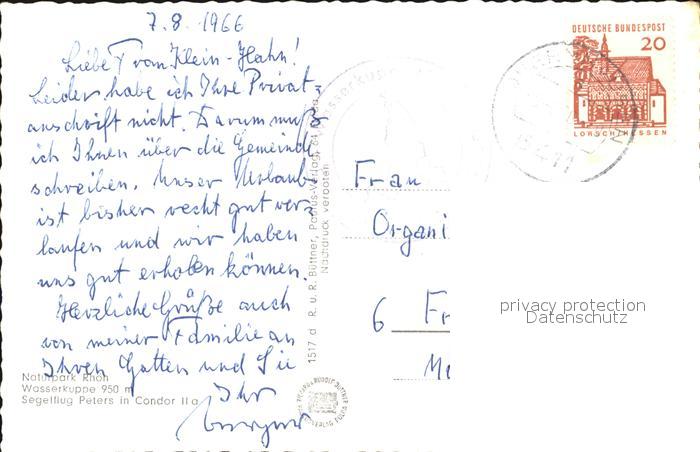 7.8.1966
Liebe Frau Klein-Hahn!
Leider habe ich Ihre Privat-
anschrift nicht. Darum muß
ich Ihnen über die Gemeinde
schreiben. Unser Urlaub
ist bisher recht gut ver-
laufen und wir haben
uns gut erholen können.
Herzliche Grüße auch
von meiner Familie an
Ihren Gatten und Sie
Ihr
Naturpark Rhön
Wasserkuppe 950 m
Segelflug Peters in Condor II a
1517 d R. u. R. Büttner, Paulus-Verlag, 64 Fulda
Nachdruck verboten
Wasserkuppe
DEUTSCHE BUNDESPOST
20
LORSCH/HESSEN
Frau
Organi
6 Fr
privacy protection
Datenschutz